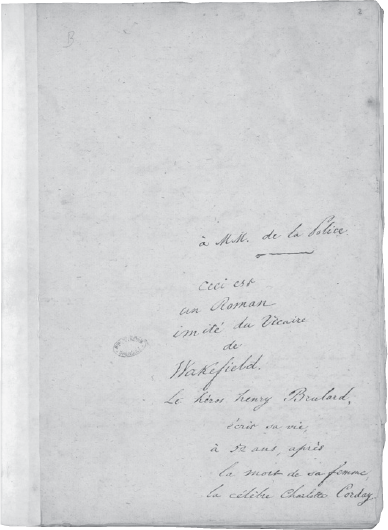 à MM. de la Police
Ceci est
un Roman
imité du Vicaire
de
Wakefield.
Le héros henry Brulard,
écrit sa vie,
à 52 ans, après
la mort de sa femme
la célèbre Charlotte Corday